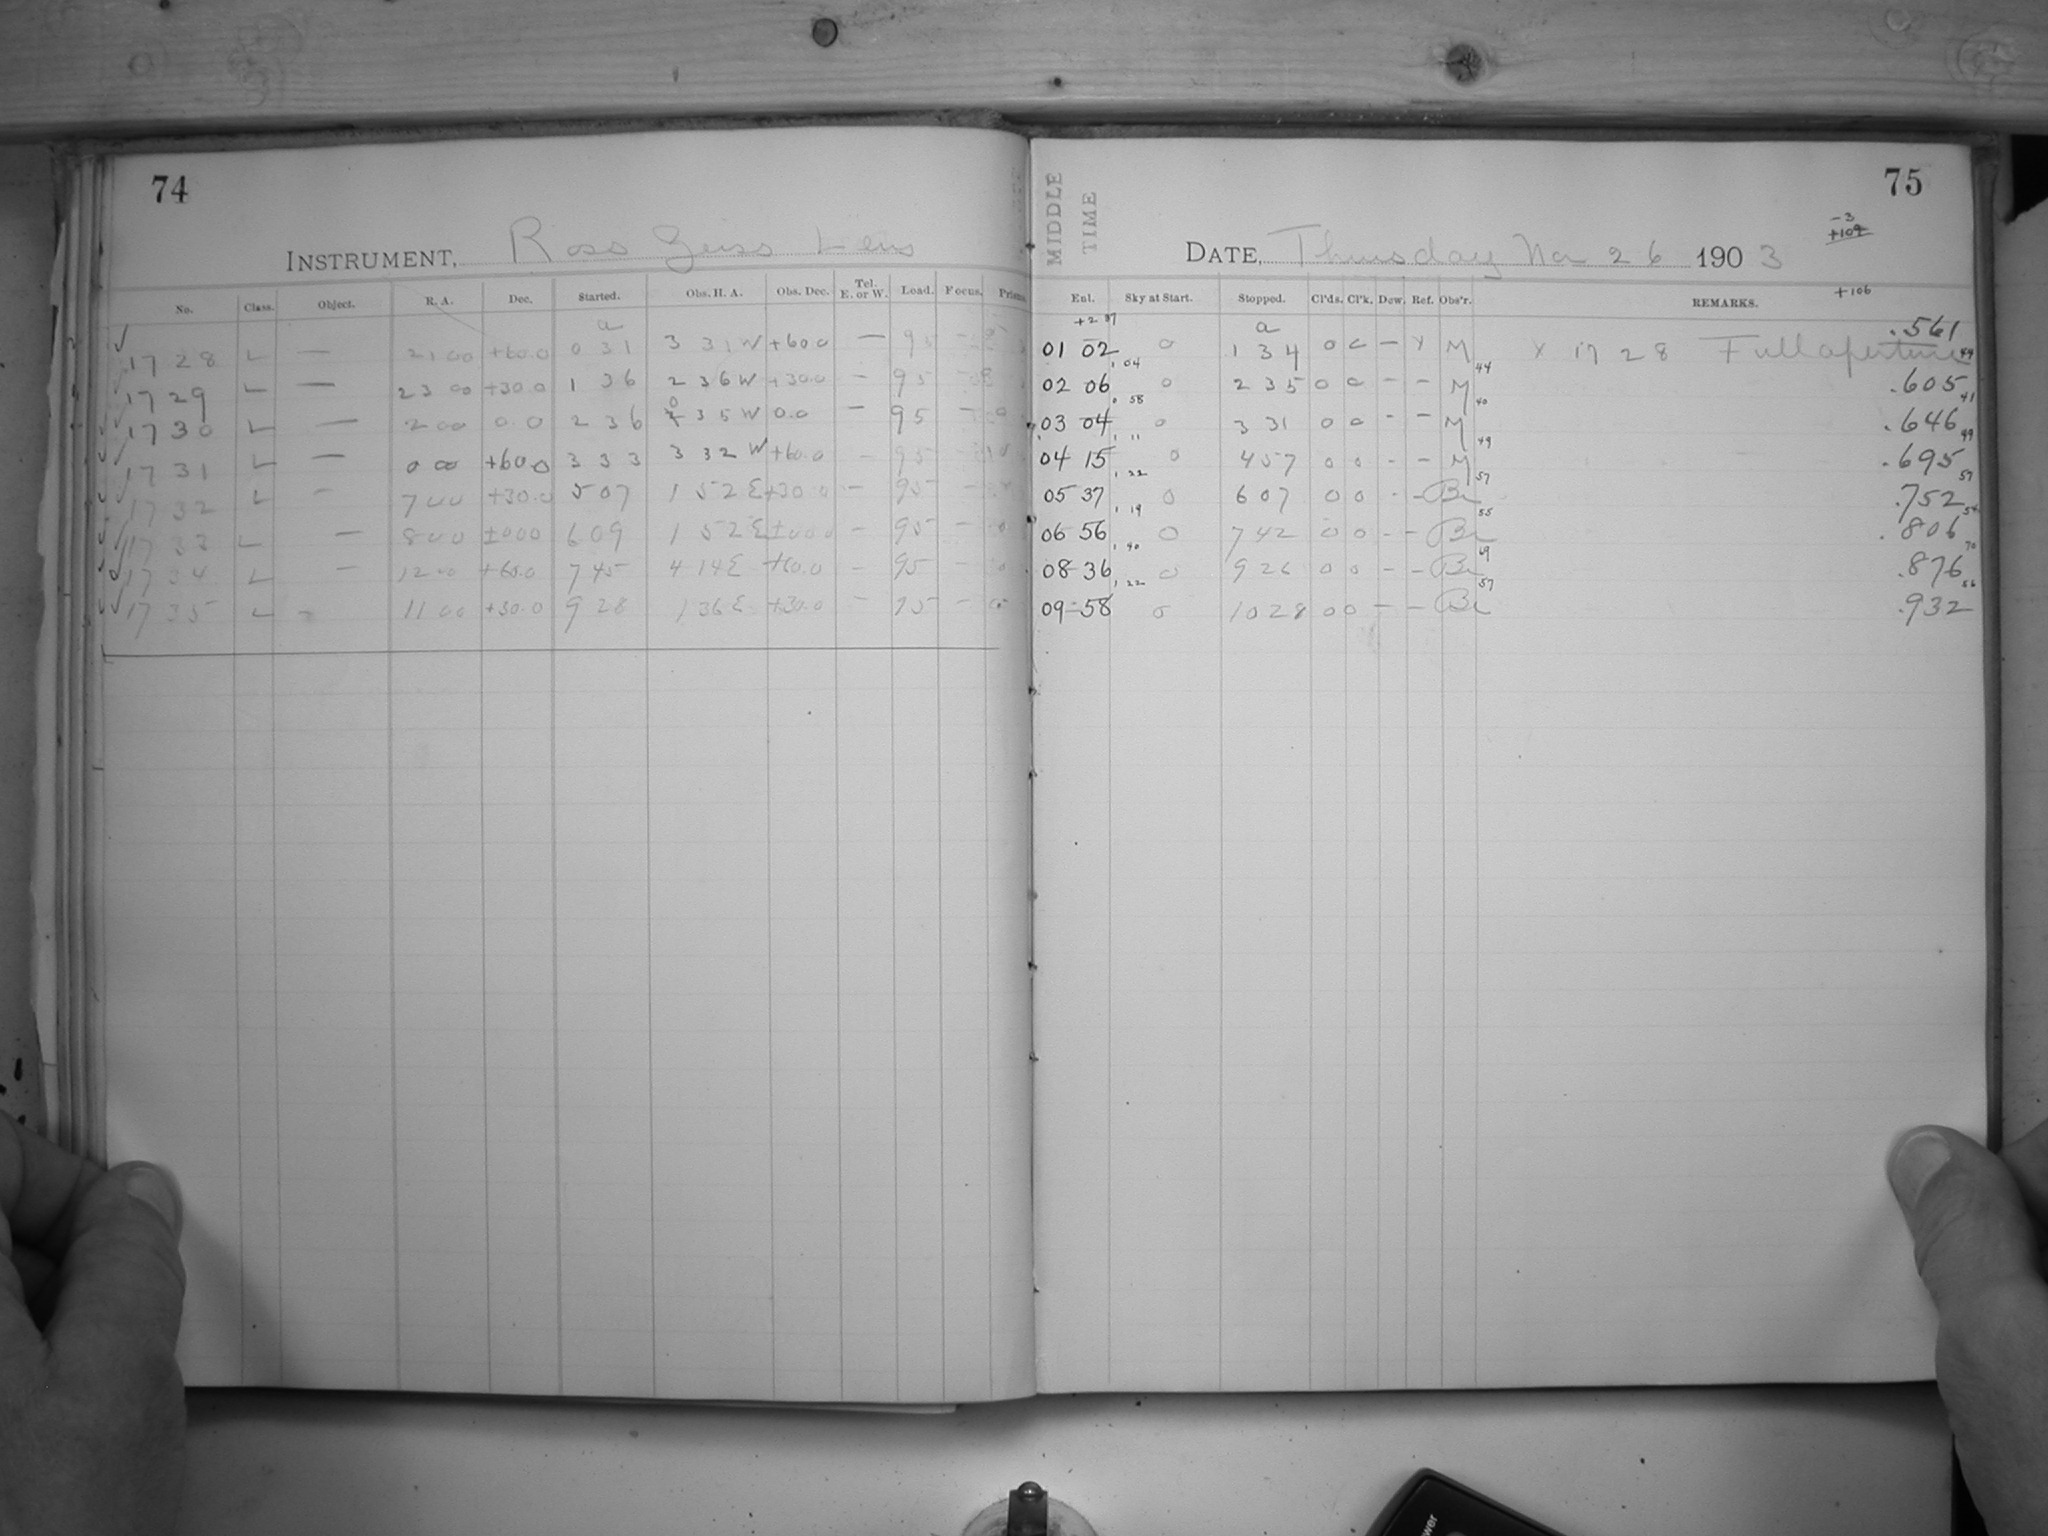 74
INSTRUMENT, Ross Zeiss Lens
No. Class. Object. R. A. Dec. Started. Obs. H. A. Obs. Dec. Tel. E. or W. Load. Focus. Prism.
a
1728 L — 21 00 +60.0 0 31 3 31 W +60.0 — 95 —
1729 L — 23 00 +30.0 1 36 2 36 W +30.0 — 95 —
1730 L — 2 00 0.0 2 36 0 35 W 0.0 — 95 — 0
1731 L — 0 00 +60.0 3 33 3 32 W +60.0 — 95 —
1732 L — 7 00 +30.0 5 07 1 52 E +30.0 — 95 —
1733 L — 8 00 ±000 6 09 1 52 E ±000 — 95 — 0
1734 L — 12 00 +60.0 7 45 4 14 E +60.0 — 95 — 0
1735 L — 11 00 +30.0 9 28 1 36 E +30.0 — 95 — 0
75
MIDDLE TIME
-3
+109
DATE, Thursday Nov 26 1903
+106
Enl. Sky at Start. Stopped. Cl'ds. Cl'k. Dew. Ref. Obs'r. REMARKS.
+2 37 a
01 02 0 1 34 0 0 — x M x 1728 Full aperture .561
1.04 44 44
02 06 0 2 35 0 0 — — M .605
0.58 40 41
03 04 0 3 31 0 0 — — M .646
1.11 49 49
04 15 0 4 57 0 0 — — M .695
1.22 57 57
05 37 0 6 07 0 0 — — Br .752
1.19 55 54
06 56 0 7 42 0 0 — — Br .806
1.40 69 70
08 36 0 9 26 0 0 — — Br .876
1.22 57 56
09 58 0 10 28 0 0 — — Br .932
wer